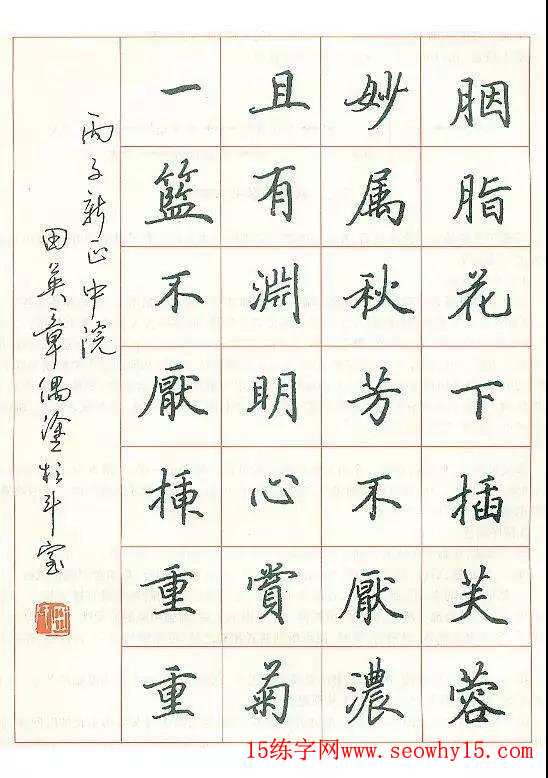 胭脂花下插芙蓉
妙属秋芳不厭濃
且有淵明心賞菊
一籃不厭挿重重
丙子新正中院
田英章偶塗於斗室
15练字网www.seowhy15.com